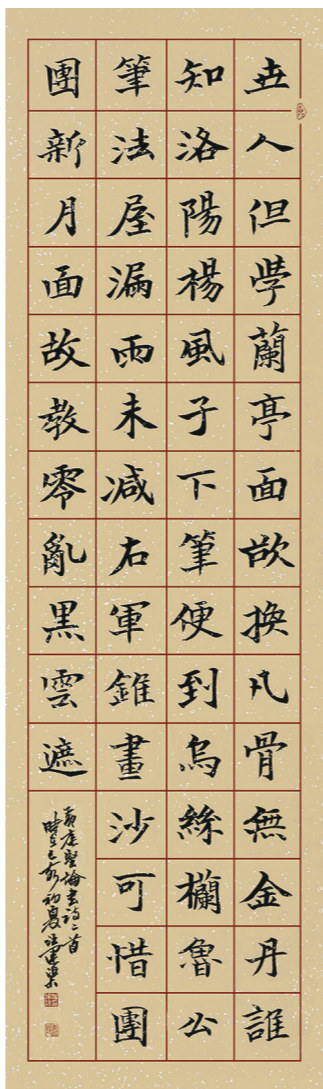 世人但學蘭亭面欲換凡骨無金丹誰
知洛陽楊風子下筆便到烏絲欄魯公
筆法屋漏雨未减右軍錐畫沙可惜團
團新月面故教零亂黑雲遮
黄庭堅論書詩二首
時在己亥初夏